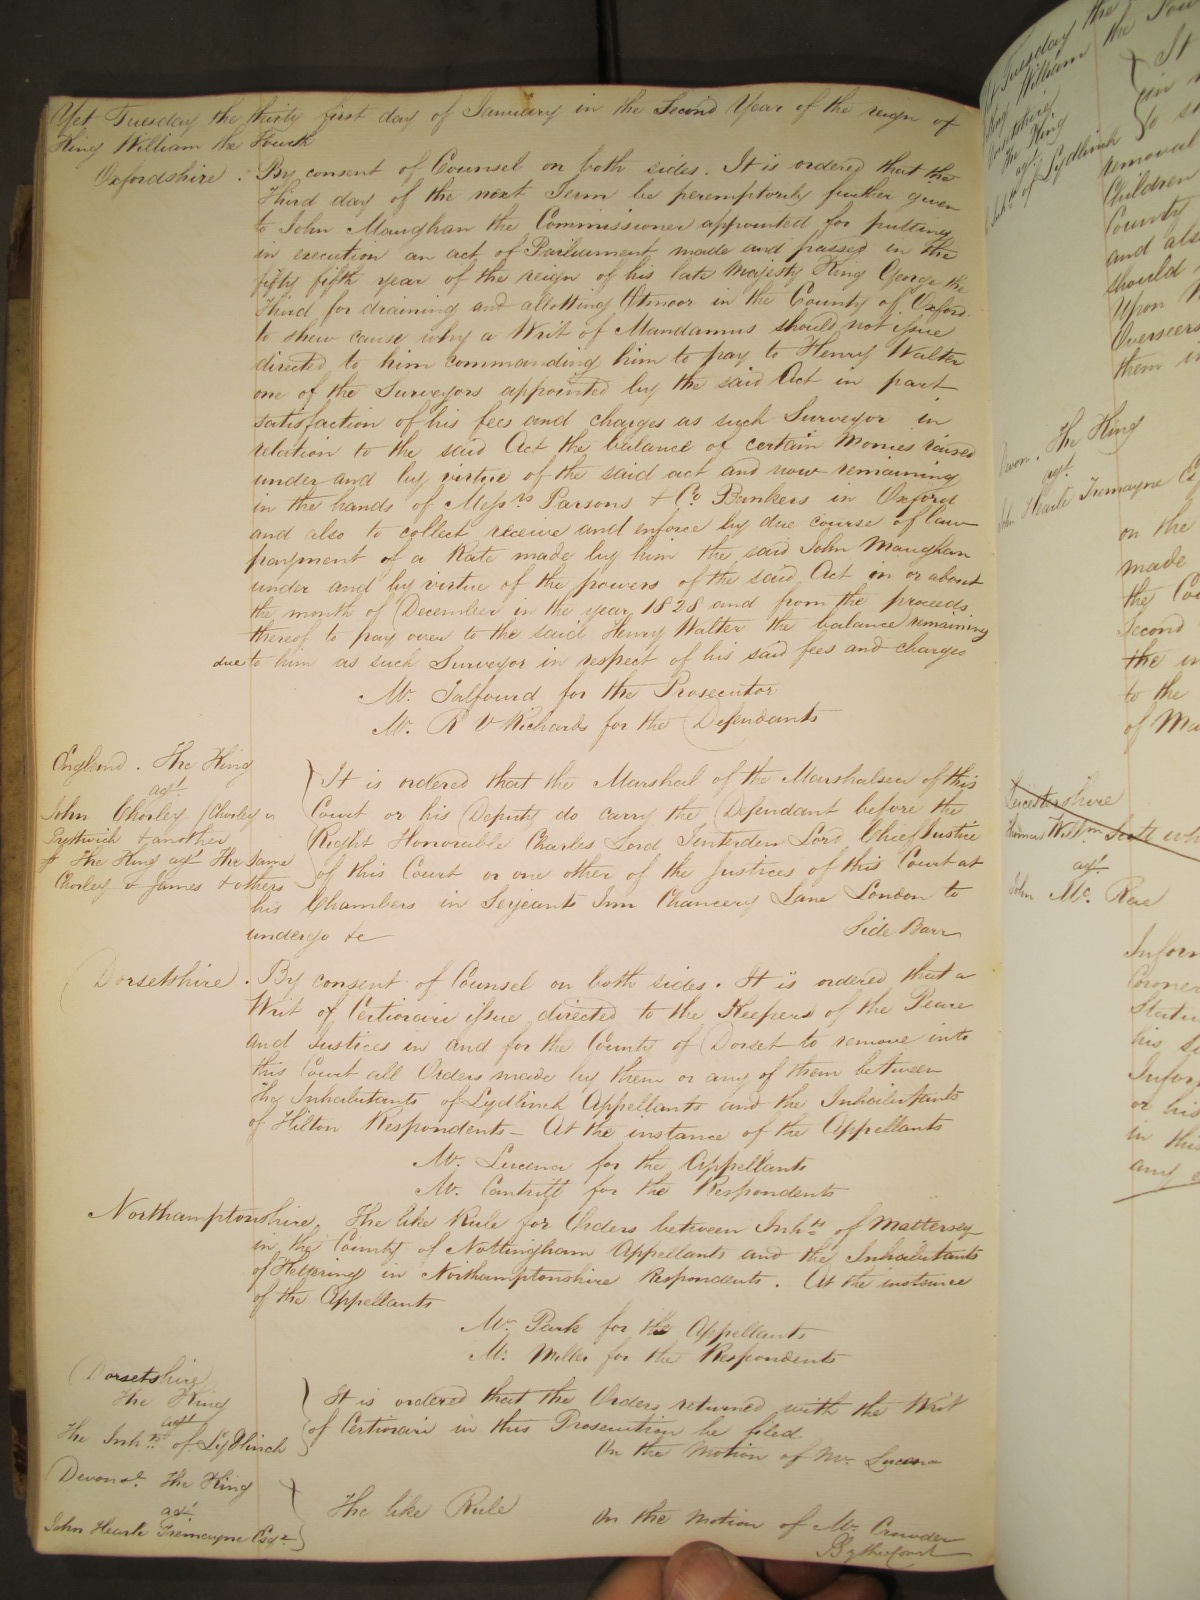 Yet Tuesday the thirty first day of January in the Second Year of the reign of
King William the Fourth
Oxfordshire . By consent of Counsel on both sides . It is ordered that the
Third day of the next Term be peremptorily further given
to John Maughan the Commissioner appointed for putting
in execution an act of Parliament made and passed in the
fifty fifth year of the reign of his late Majesty King George the
Third for draining and allotting Otmoor in the County of Oxford
to shew cause why a Writ of Mandamus should not issue
directed to him commanding him to pay to Henry Walter
one of the Surveyors appointed by the said Act in part
satisfaction of his fees and charges as such Surveyor in
relation to the said Act the balance of certain Monies raised
under and by virtue of the said act and now remaining
in the hands of Messrs Parsons & Co Bankers in Oxford
and also to collect receive and enforce by due course of law
payment of a Rate made by him the said John Maughan
under and by virtue of the powers of the said Act in or about
the month of December in the year 1828 and from the proceeds
thereof to pay over to the said Henry Walter the balance remaining
due to him as such Surveyor in respect of his said fees and charges
Mr. Talfourd for the Prosecutor
Mr. R V Richards for the Defendants
England . The King
agt
John Chorley (Chorley v
Prestwich & another
& The King agt The Same
Chorley v James & others
It is ordered that the Marshal of the Marshalsea of this
Court or his Deputy do carry the Defendant before the
Right Honorable Charles Lord Tenterden Lord Chief Justice
of this Court or one other of the Justices of this Court at
his Chambers in Serjeants Inn Chancery Lane London to
undergo &c Side Barr
Dorsetshire . By consent of Counsel on both sides . It is ordered that a
Writ of Certiorari issue directed to the Keepers of the Peace
and Justices in and for the County of Dorset to remove into
this Court all Orders made by them or any of them between
the Inhabitants of Lydlinch Appellants and the Inhabitants
of Hilton Respondents – At the instance of the Appellants
Mr. Lucena for the Appellants
Mr. for the Respondents
Northamptonshire . The like Rule for Orders between Inhts of Mattersey
in the County of Nottingham Appellants and the Inhabitants
of Kettering in Northamptonshire Respondents . At the instance
of the Appellants
Mr. Park for the Appellants
Mr. Miller for the Respondents
Dorsetshire
The King
agt
The Inhts of Lydlinch
It is ordered that the Orders returned with the Writ
of Certiorari in this Prosecution be filed
On the Motion of Mr. Lucena
Devon The King
agt
John Hearle Tremayne Esqr
The like Rule On the Motion of Mr. Crowder
By the Court
Yet Tuesday the
King William the Fou
Dorsetshire
The King
agt
Inhts of Lydlinch
It
removal
Children
County
and also
should
Upon
Overseers
them in
Devon . The King
agt
John Hearle Tremayne
on the
made
the Cou
Second
the
to the
of Ma
Leicestershire
agt
John Mc. Rae
Inform
Coroner
Statu
his
Infor
or his
in this
any